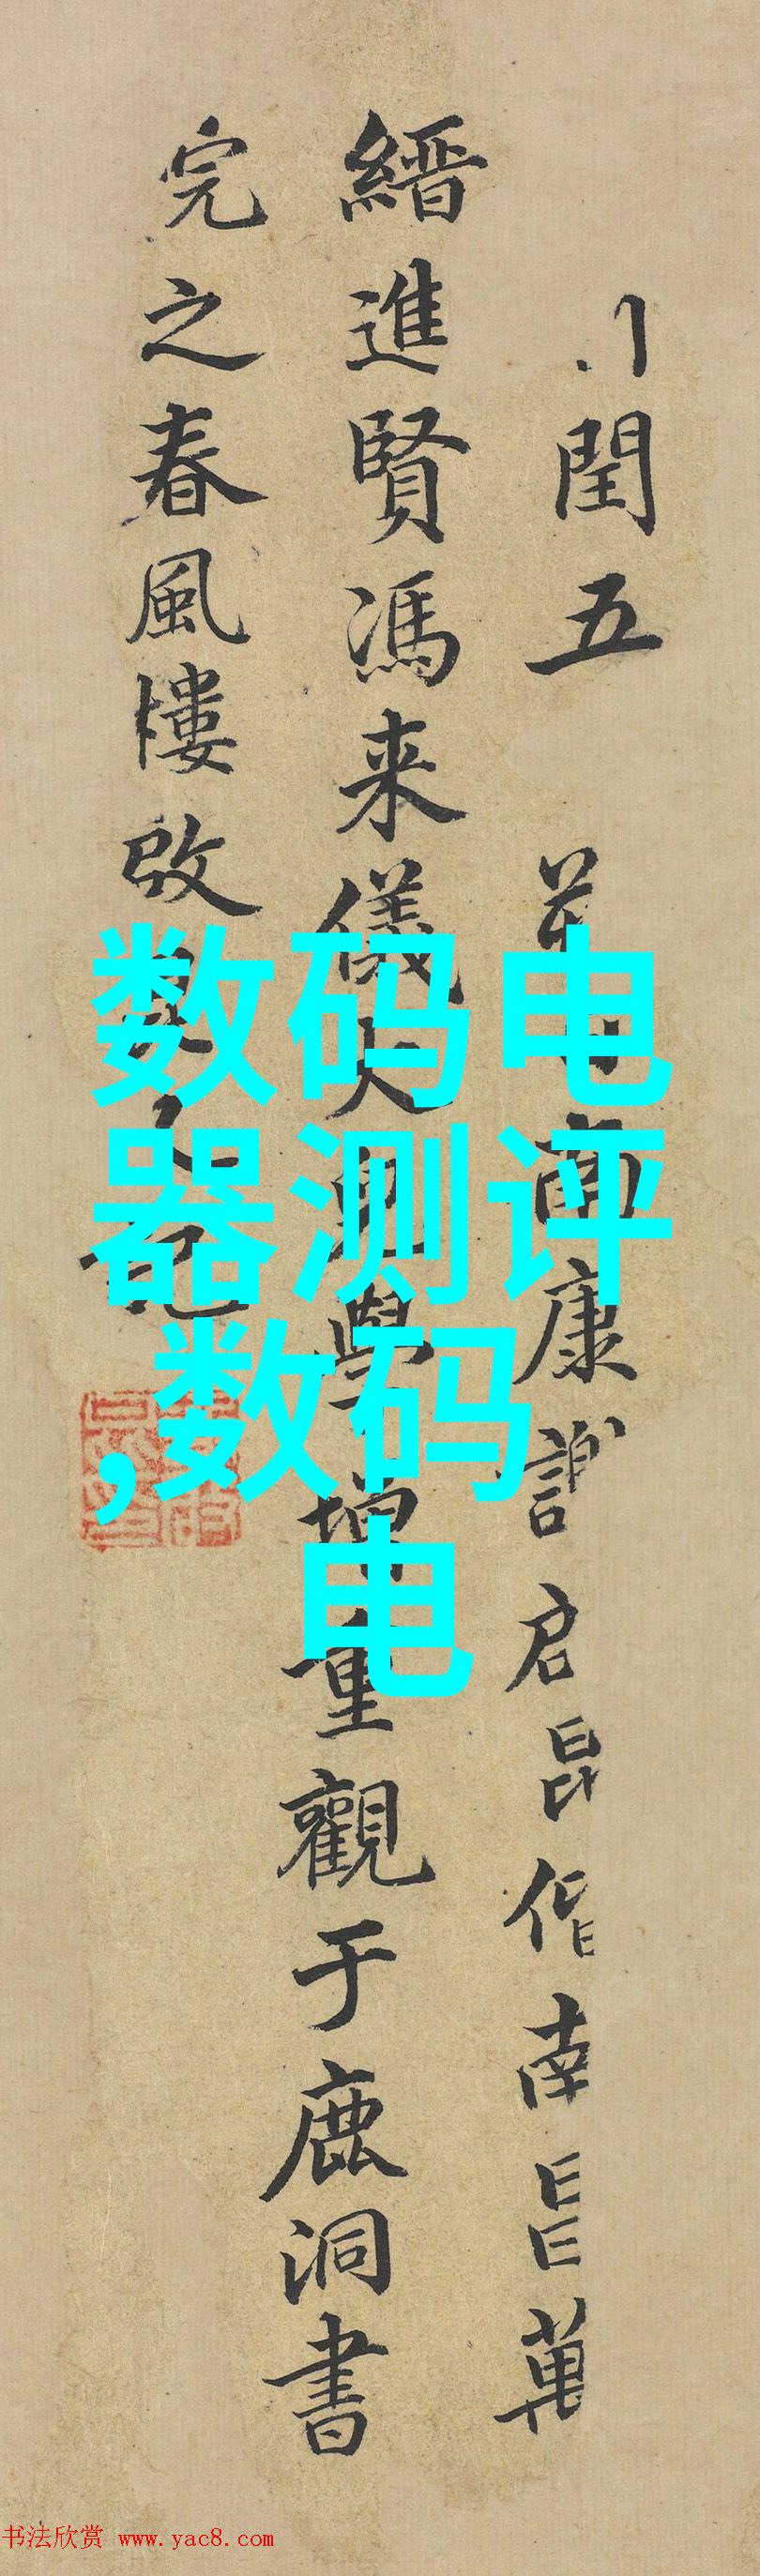 閏五南康謝启昆偕南昌萬
縉進賢馮来儀大學重觀于鹿洞書
完之春風樓啟記
数码电
器测评
,数码
电
书法欣赏 www.yac8.com